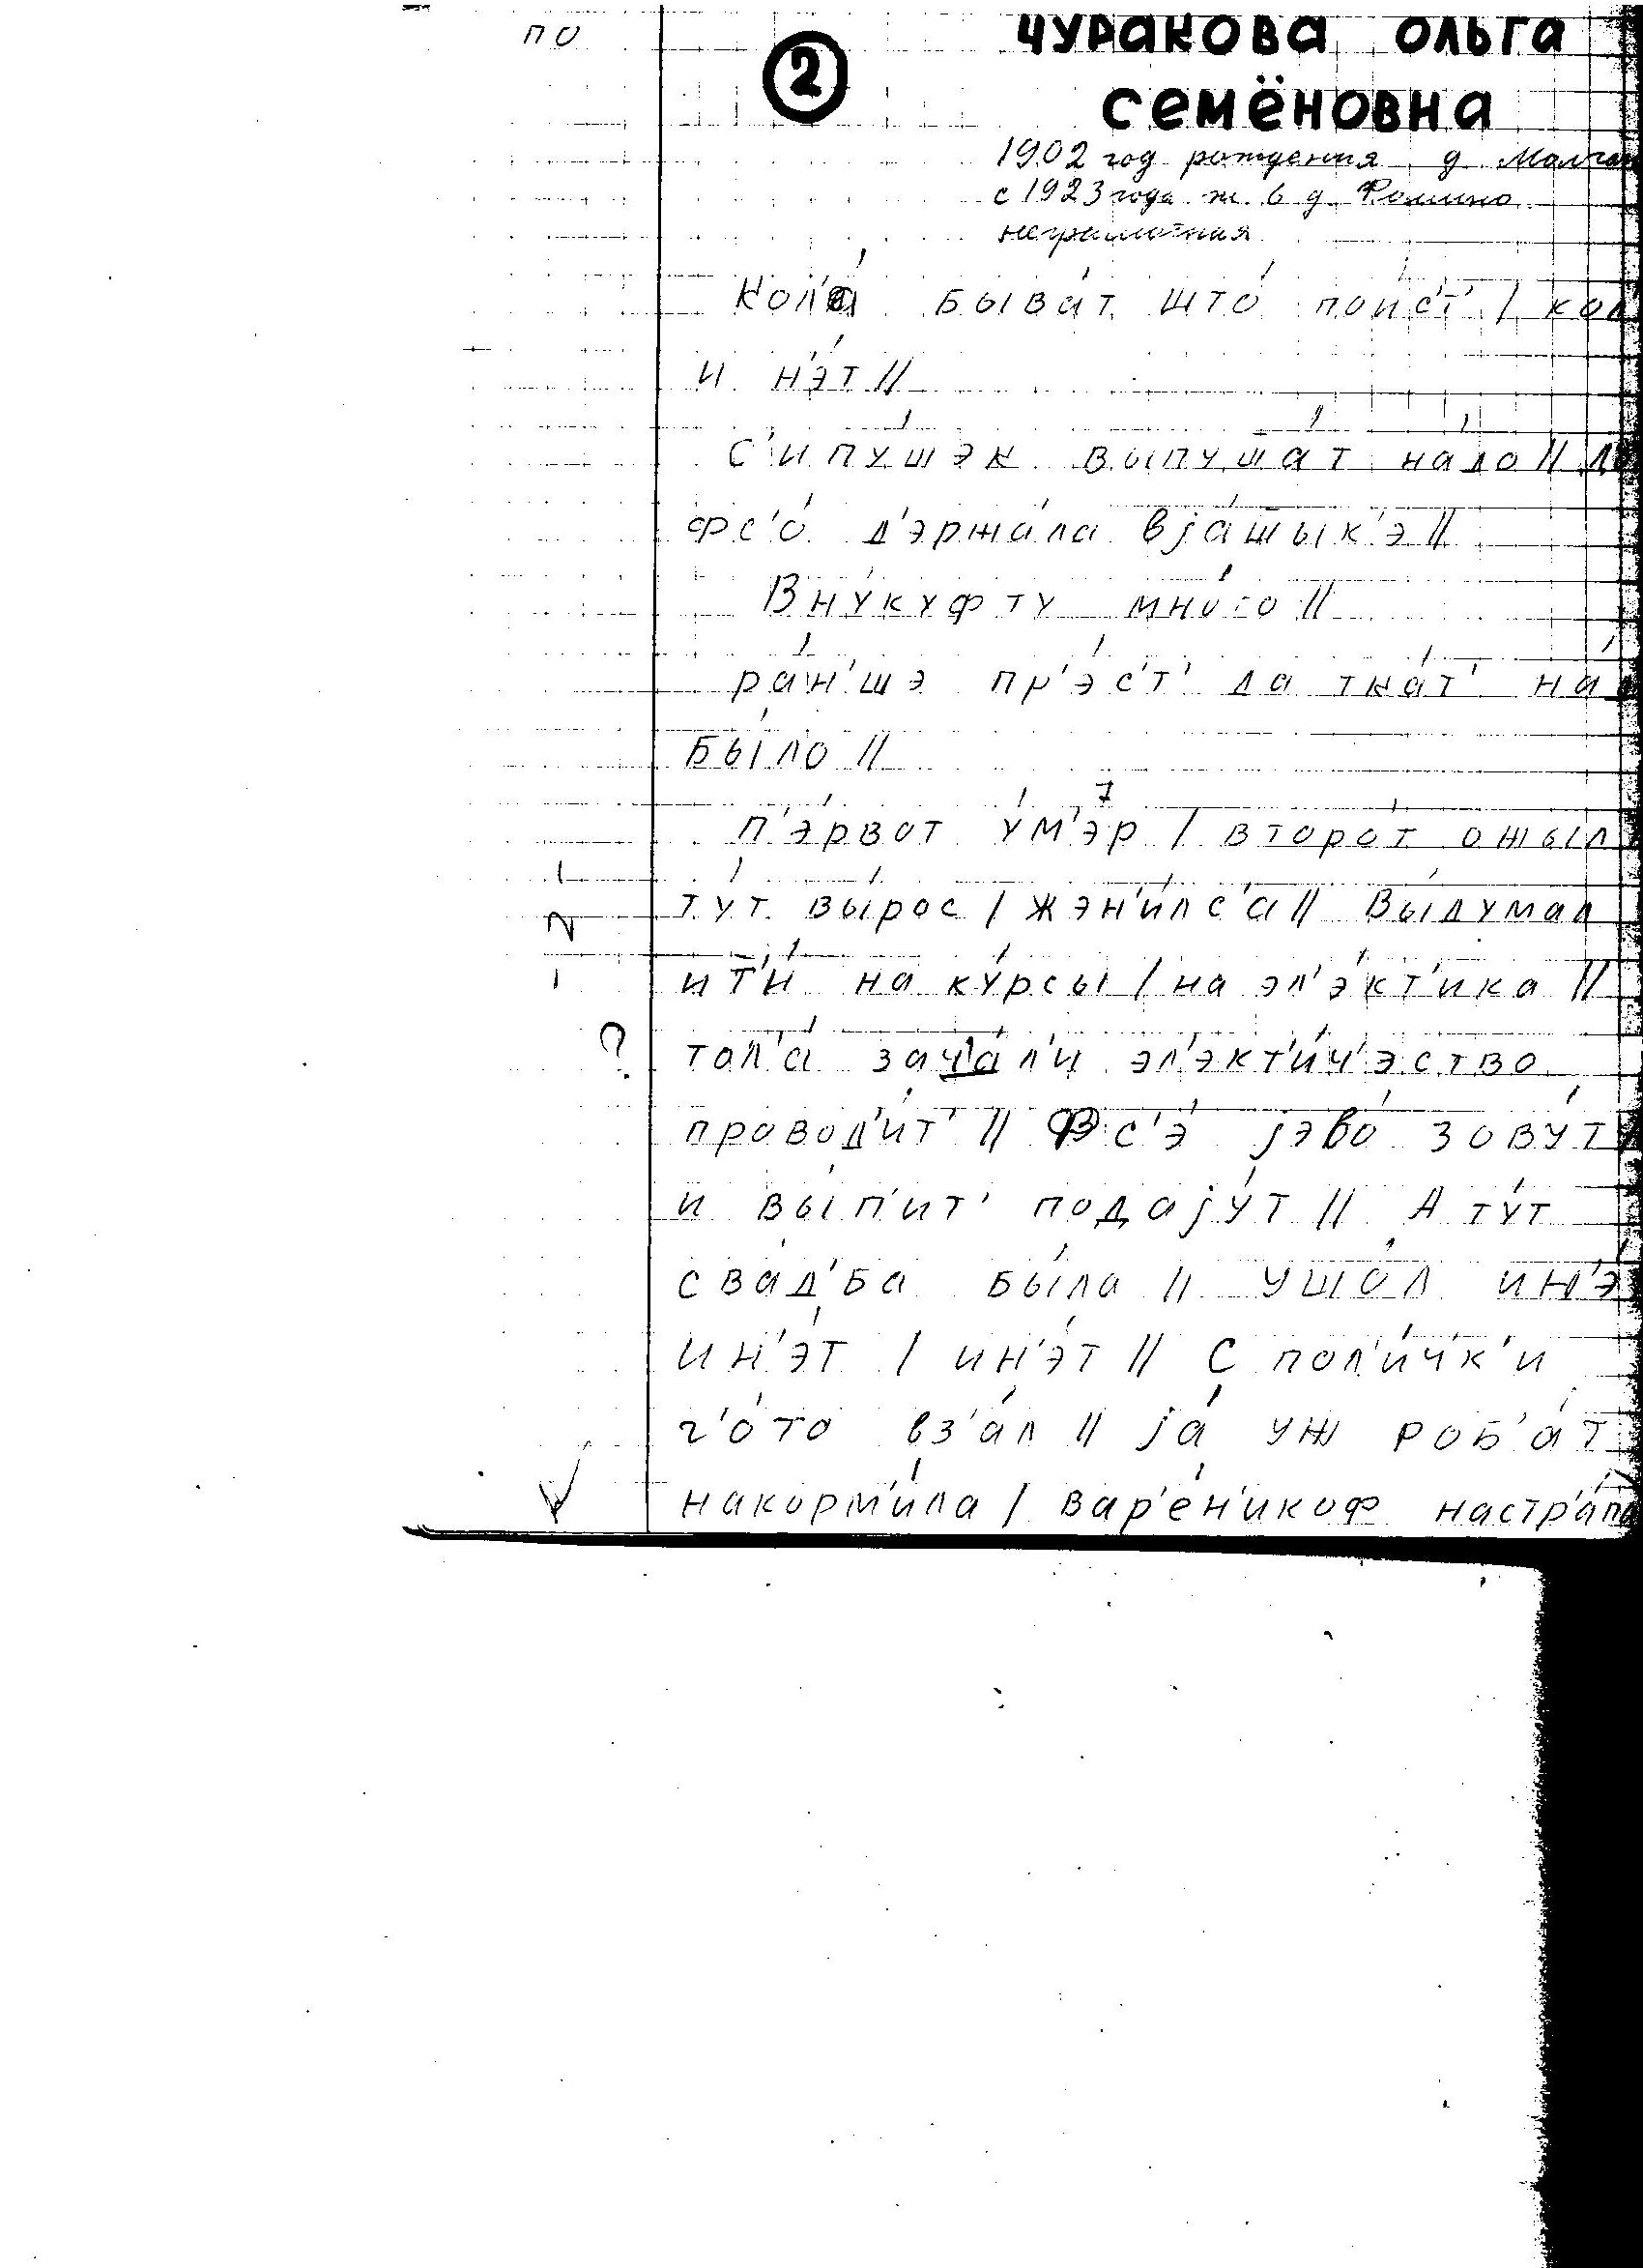 по
2
Чуракова Ольга
Семёновна
1902 год рождения д.
с 1923 года ж. в д. Фомино
неграмотная
Кол'а́ быва́т што́ пойс'т' /
и н'э́т //
с'ипу́шэк выпуша́т на́до //
фс'о́ д'эржа́ла вjа́шык'э //
Вну́куфту мно́го //
ра́н'шэ пр'э́с'т' да тка́т'
бы́ло //
п'э́рвот у́м'эр / второ́т ожы́л
ту́т вы́рос / жэн'и́лс'а // Вы́думал
ит'и́ на ку́рсы / на эл'э́кт'ика //
тол'а́ зача́л'и эл'экт'и́ч'эство
провод'и́т' // Фс'э́ jэво́ зову́т
и вы́п'ит' подаjу́т // А ту́т
сва́д'ба бы́ла // ушо́л ин'э́
ин'э́т / ин'э́т // С пол'и́чк'и
ч'о́то вз'а́л // jа́ уж роб'а́т
накорм'и́ла / вар'е́н'икоф
- 2 -
?